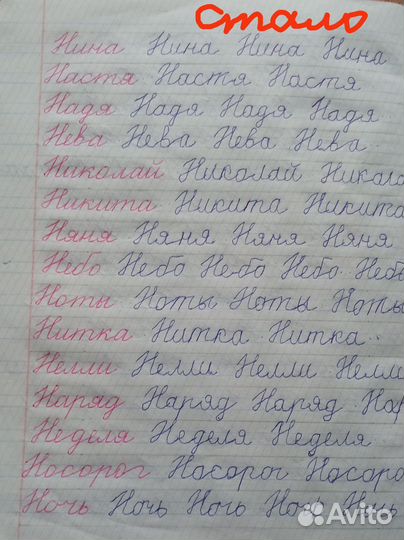 стало
Нина Нина Нина Нина
Настя Настя Настя
Надя Надя Надя Надя
Нева Нева Нева Нева
Николай Николай Никола
Никита Никита Никита
Няня Няня Няня Няня
Небо Небо Небо Небо Небо
Ноты Ноты Ноты Ноты
Нитка Нитка Нитка
Нелли Нелли Нелли Нелли
Наряд Наряд Наряд Нар
Неделя Неделя Неделя
Носорог Носорог Носоро
Ночь Ночь Ночь Ночь Ночь
Avito